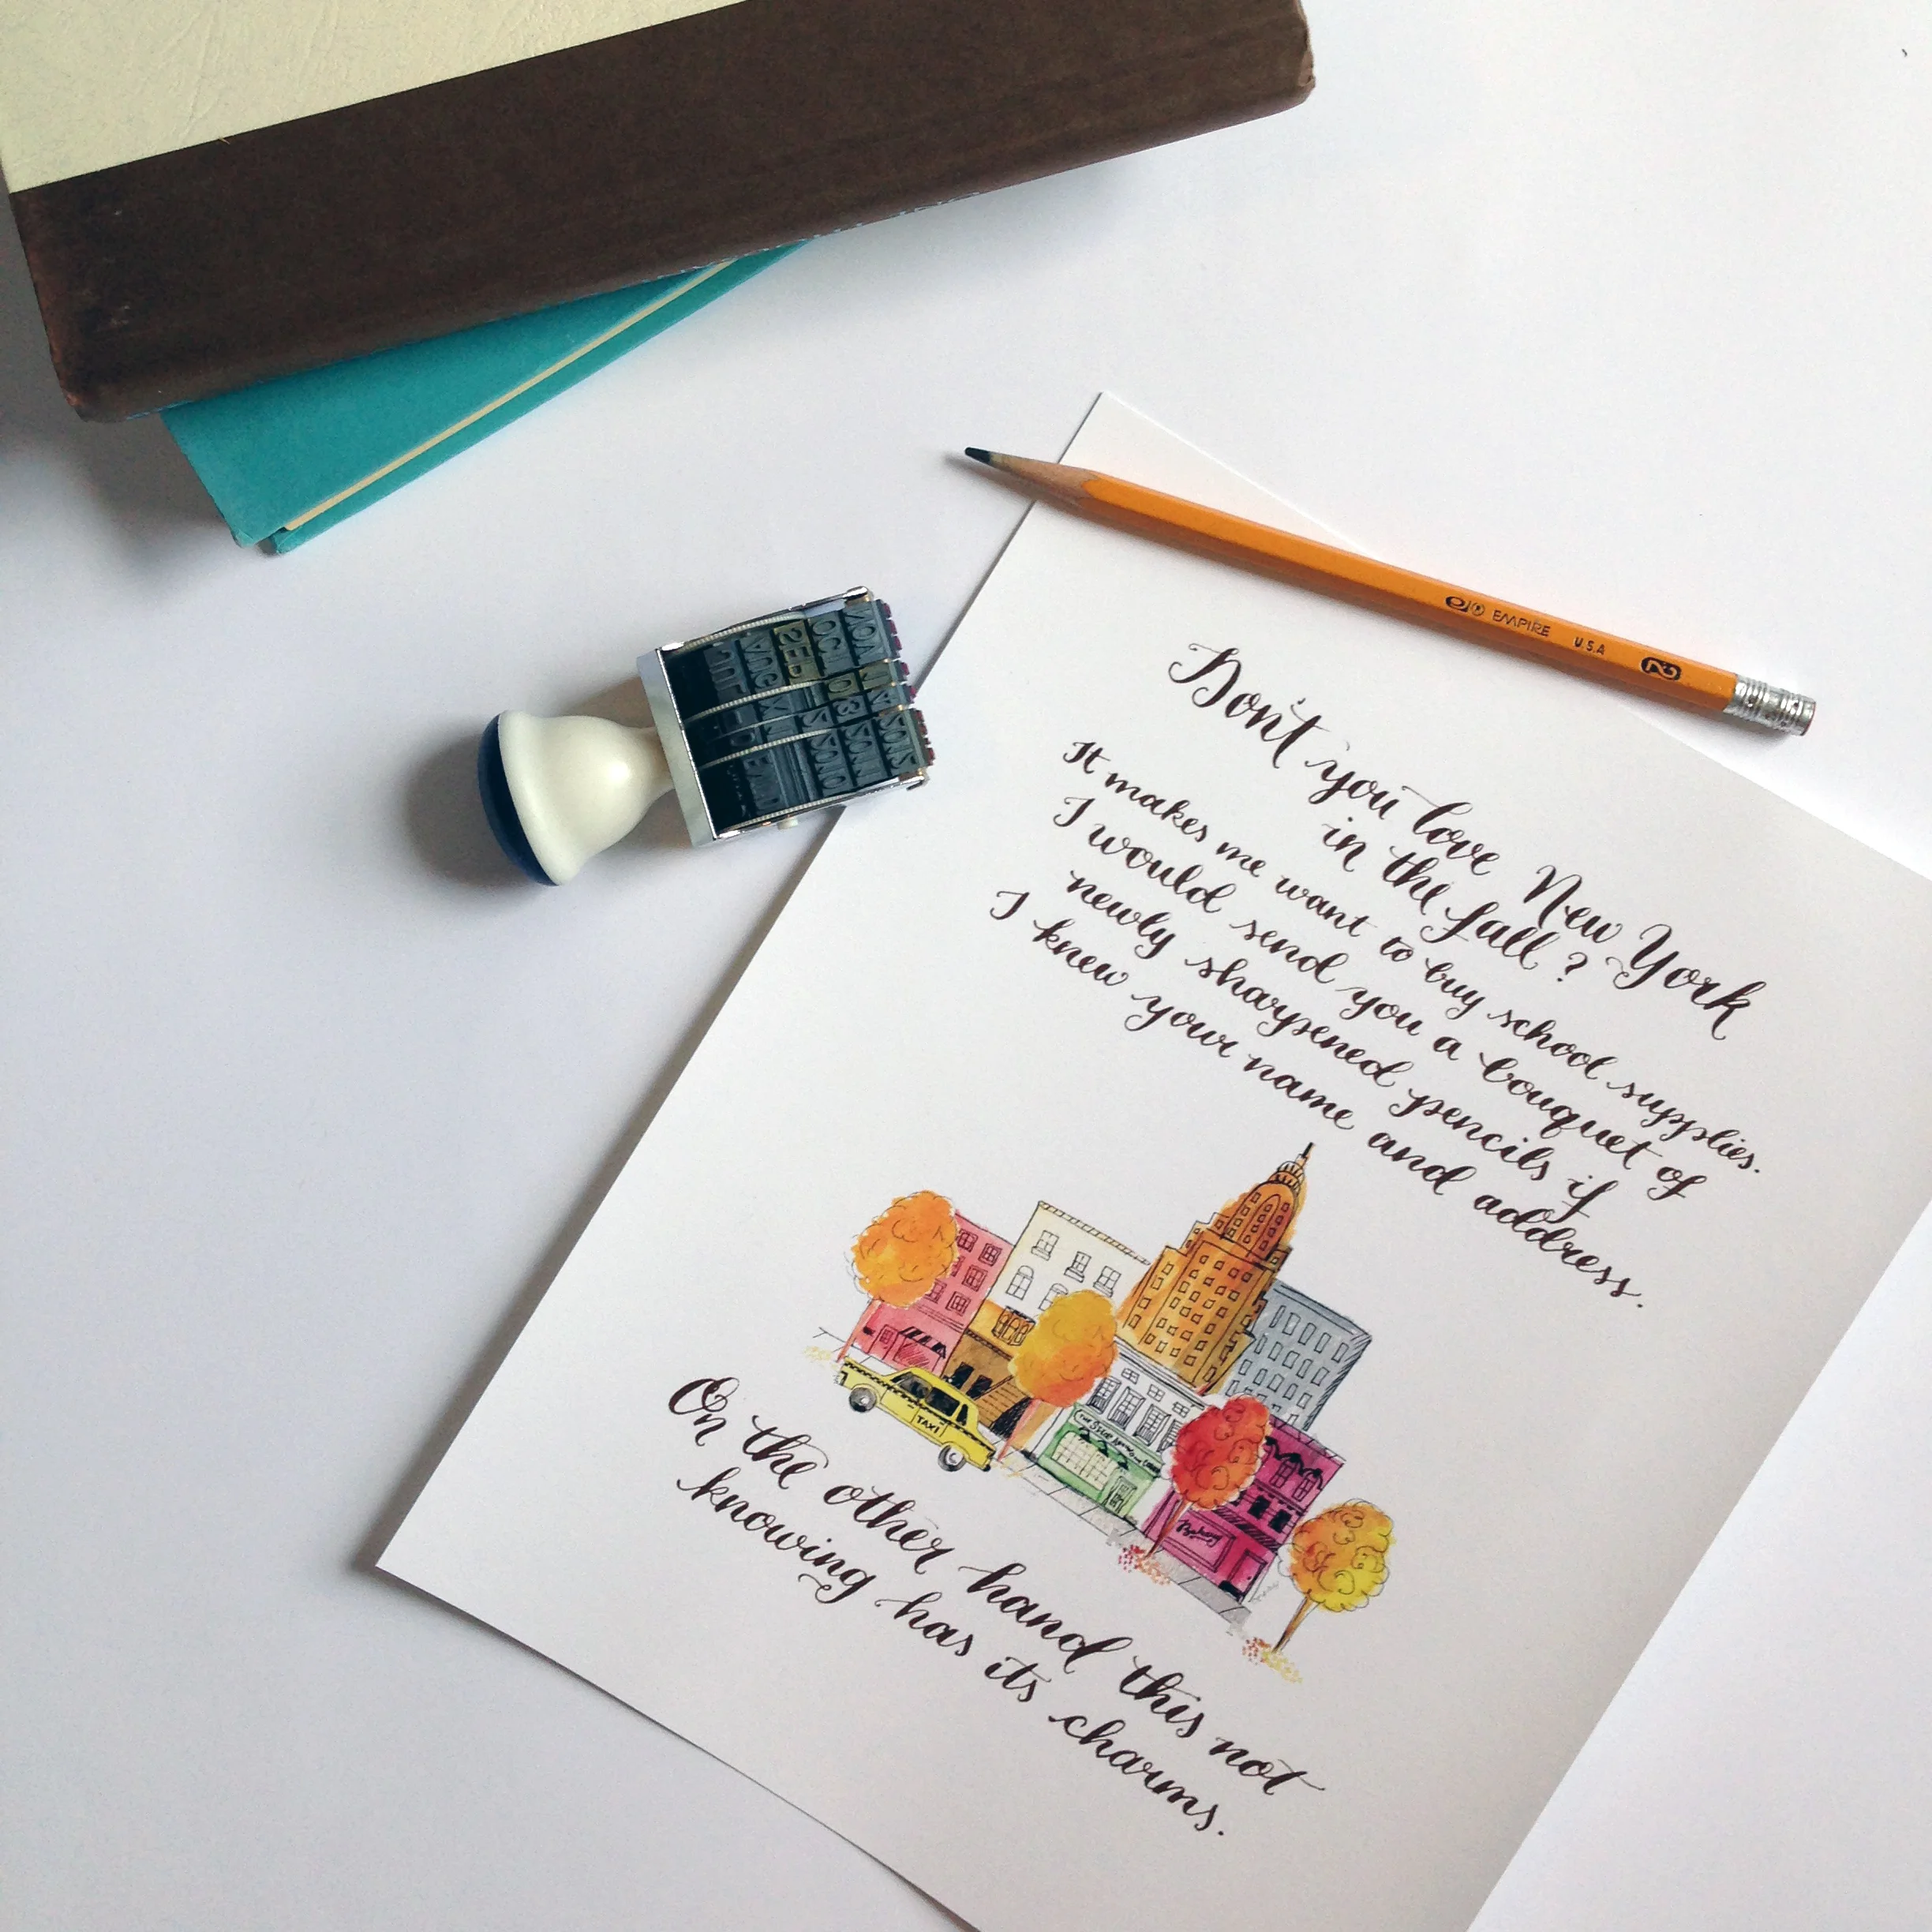 EMPIRE U.S.A 2
Don't you love New York
in the fall?
It makes me want to buy school supplies.
I would send you a bouquet of
newly sharpened pencils if
I knew your name and address.
TAXI
Bakery
On the other hand this not
knowing has its charms.